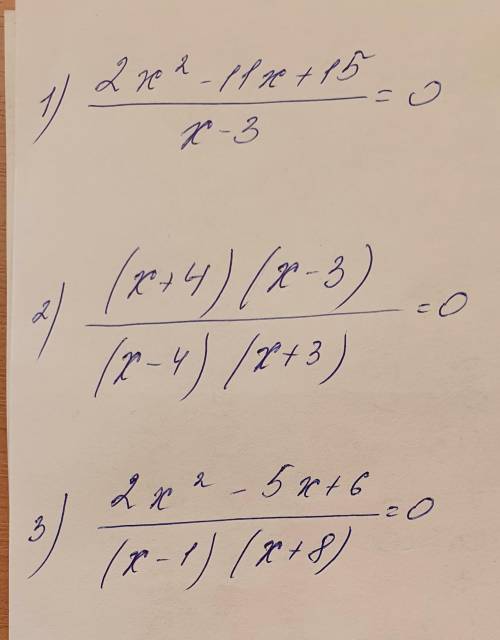 1) (2x² - 11x + 15)/(x - 3) = 0
2) ((x+4)(x-3))/((x-4)(x+3)) = 0
3) (2x² - 5x + 6)/((x-1)(x+8)) = 0